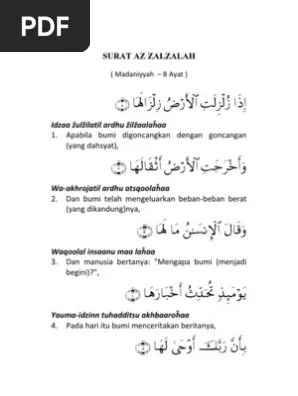 PDF
SURAT AZ ZALZALAH
( Madaniyyah – 8 Ayat )
إِذَا زُلْزِلَتِ ٱلْأَرْضُ زِلْزَالَهَا ۝
Idzaa žulžilatil ardhu žilžaalaĥaa
1. Apabila bumi digoncangkan dengan goncangan
(yang dahsyat),
وَأَخْرَجَتِ ٱلْأَرْضُ أَثْقَالَهَا ۝
Wa-akhrojatil ardhu atsqoolaĥaa
2. Dan bumi telah mengeluarkan beban-beban berat
(yang dikandung)nya,
وَقَالَ ٱلْإِنسَٰنُ مَا لَهَا ۝
Waqoolal insaanu maa laĥaa
3. Dan manusia bertanya: "Mengapa bumi (menjadi
begini)?",
يَوْمَئِذٍ تُحَدِّثُ أَخْبَارَهَا ۝
Yauma-idzinn tuhadditsu akhbaaroĥaa
4. Pada hari itu bumi menceritakan beritanya,
بِأَنَّ رَبَّكَ أَوْحَىٰ لَهَا ۝